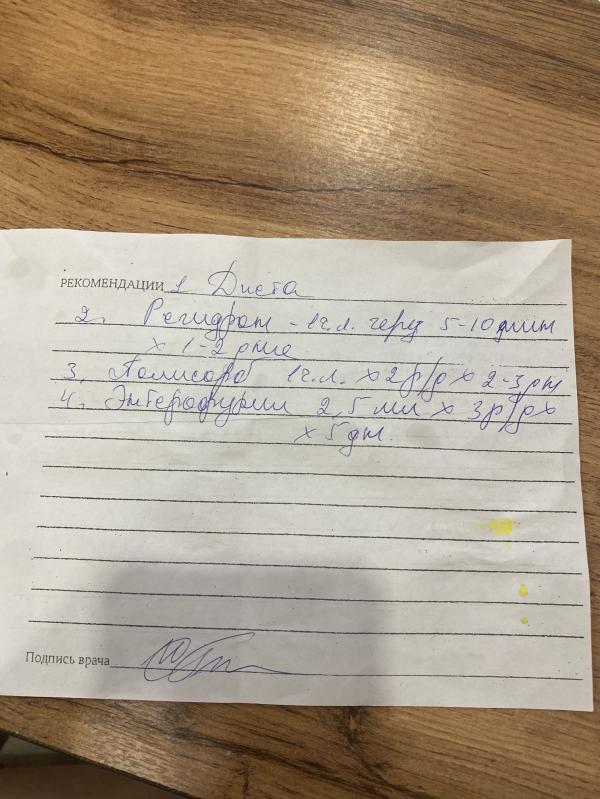 РЕКОМЕНДАЦИИ 1 Диета
2. Регидрон - 1 ч.л. через 5-10 мин
х 1-2 дня
3. Полисорб 1 ч.л. х 2 р/д х 2-3 дн
4. Энтерофурил 2,5 мл х 3 р/д х
х 5 дн.
Подпись врача